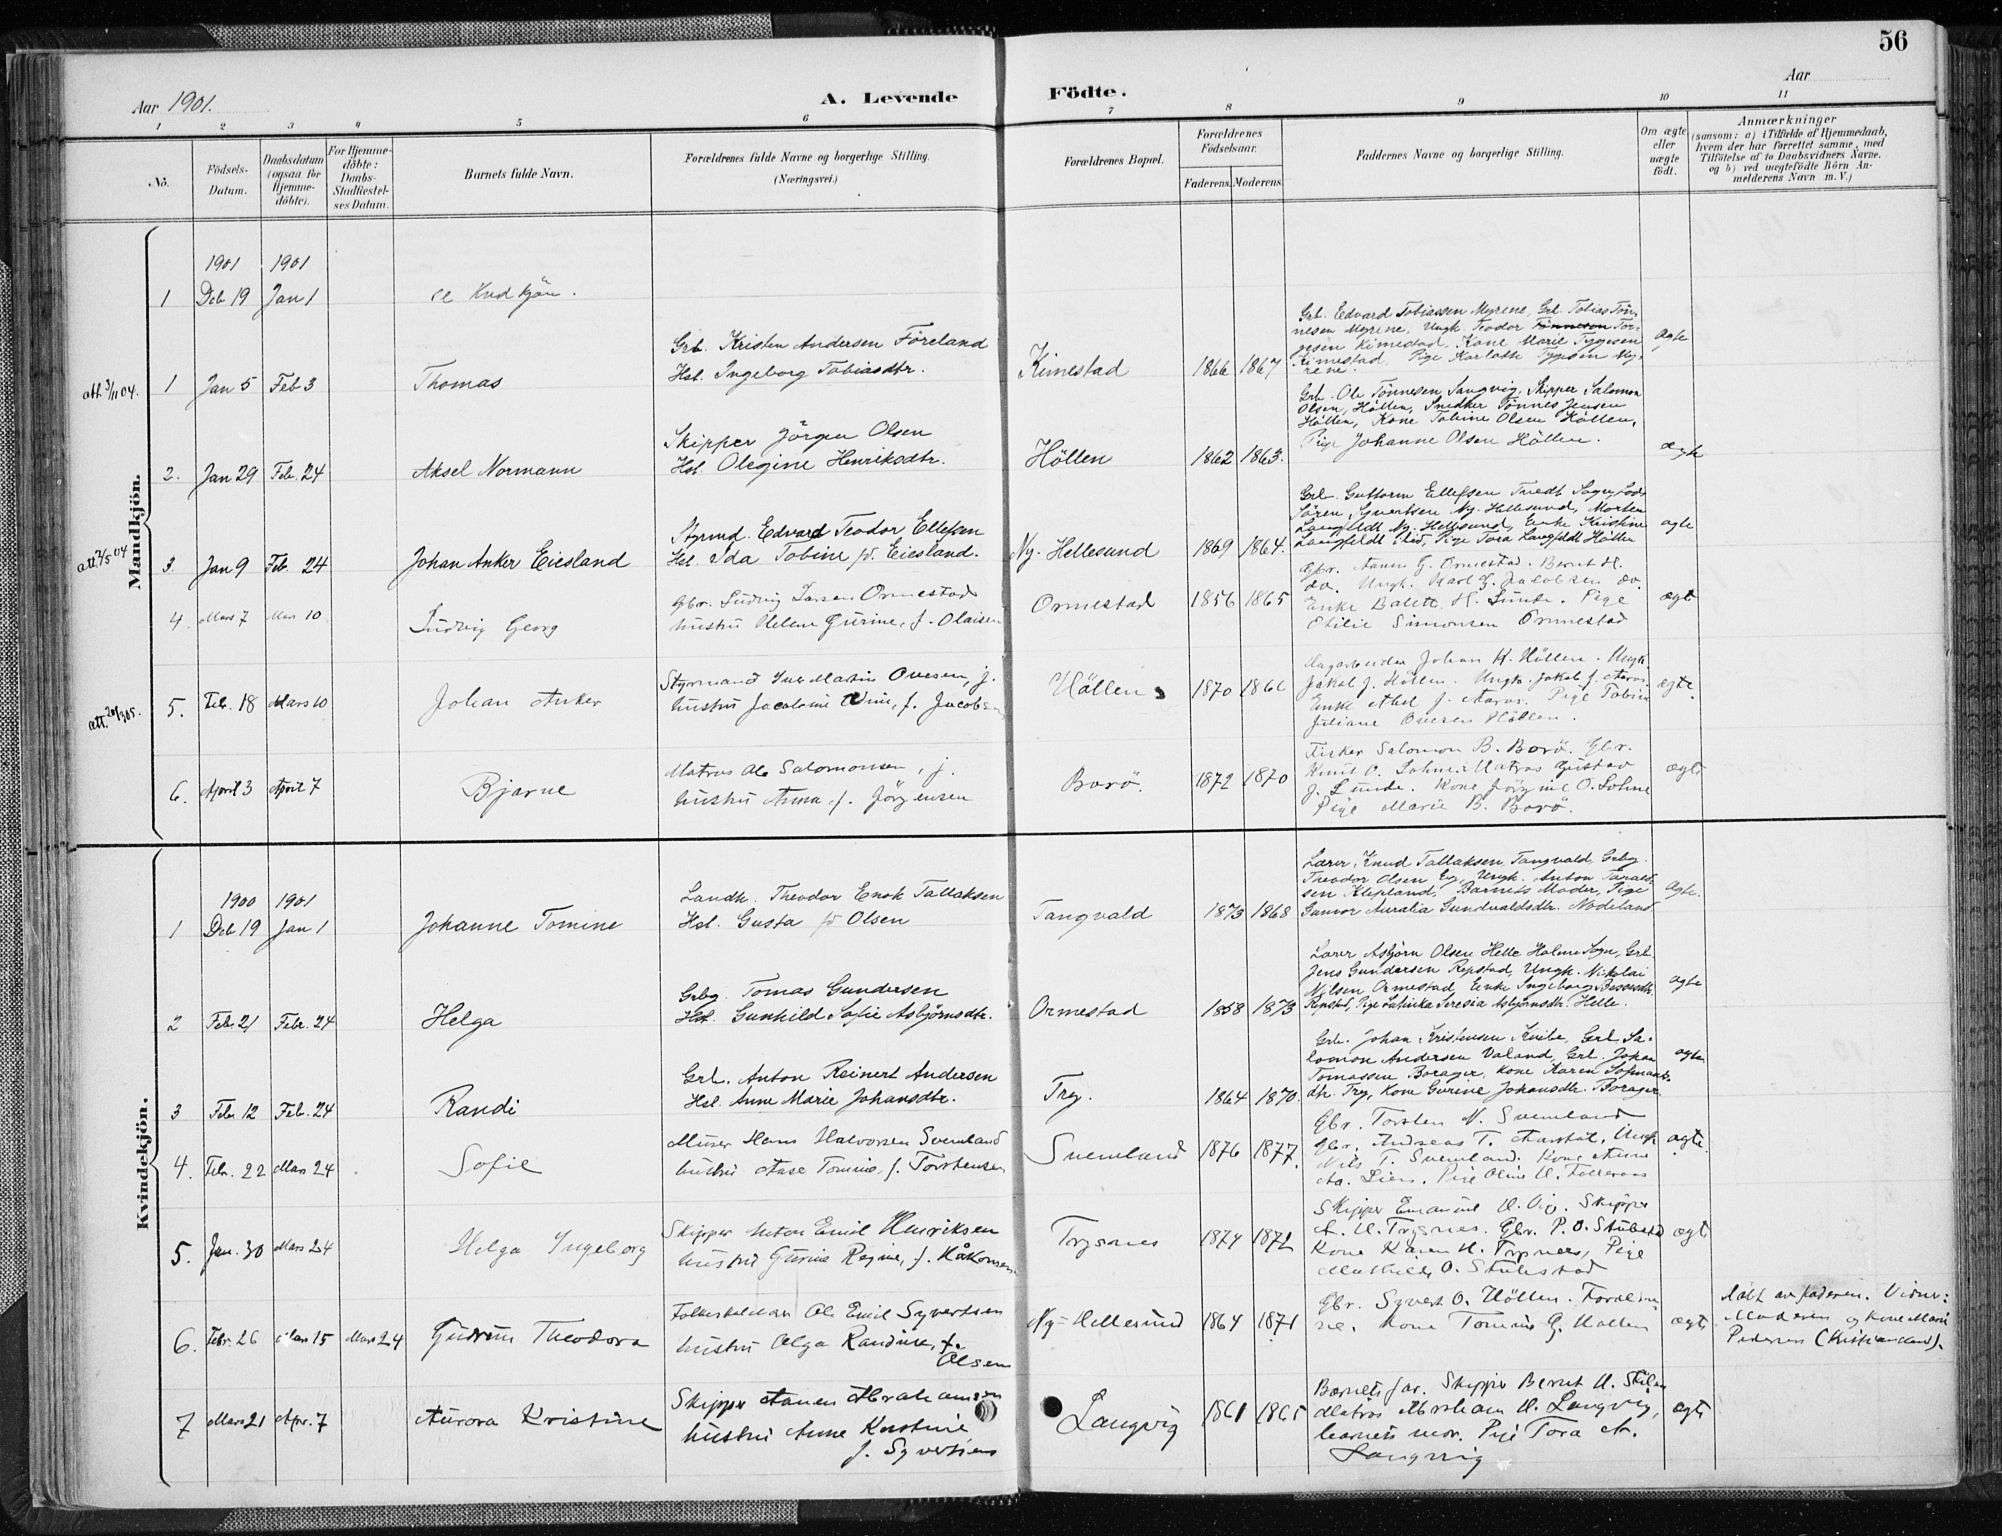 56
Aar 1901.
A. Levende Födte.
Aar
1 2 3 4 5 6 7 8 9 10 11
No.
Födsels-Datum.
Daabsdatum (ogsaa for Hjemme-döbte).
For Hjemme-döbte: Daabs-Stadfæstel-ses Datum.
Barnets fulde Navn.
Forældrenes fulde Navne og borgerlige Stilling. (Næringsvei.)
Forældrenes Bopæl.
Forældrenes Födselsaar.
Faderens. Moderens.
Faddernes Navne og borgerlige Stilling.
Om ægte eller uægte födt.
Anmærkninger
(saasom: a) i Tilfælde af Hjemmedaab,
hvem der har forrettet samme, med
Tilföielse af to Daabsvidners Navne.
og b) ved uægtefödte Börn An-
melderens Navn m. V.)
Mandkjön.
1901 1901
1 Deb 19 Jan 1 Kvdkjön.
Grb. Edvard Tobiassen Myrene, Grb. Tobias Tön-
Grb. Kristen Andersen Föreland
nesen Myrene, Ungk. Teodor Tönnesen Tor-
gesen Kimestad, Kone Marie Tygesen
att 3/11 04. 1 Jan 5 Feb 3 Thomas Hst. Ingeborg Tobiasdtr. Kimestad 1866 1867 Kimestad, Pige Karlotte Tygesen My- ægte
rene.
Grb. Ole Tönnesen Langvig, Skipper Salomon
Olsen, Hölle‌n, Snedker Tönnes Jensen
Skipper Jörgen Olsen
Höllen, Kone Tobine Olsen Höllen,
2. Jan 29 Feb. 24 Aksel Normann Hst. Olegine Henriksdtr. Höllen 1862 1863. Pige Johanne Olsen Höllen. ægte
Grb. Guttorm Ellefsen Tvedt Sogn, Lods
Styrmd. Edvard Teodor Ellefsen
Sören Syvertsen Ny-Hellesund, Morten
Langfeldt Ny-Hellesund, Enke Kristine
3. Jan 9 Feb. 24 Johan Anker Eiesland Hst. Ida Tobine f. Eiesland. Ny-Hellesund 1869 1864. Langfeldt ibid, Pige Tora Langfeldt Höllen ægte
Gbr. Aanen G. Ormestad. Bernt H.
Gbr. Ludvig Larsen Ormestad
do. Ungk. Karl G. Jacobsen do.
4. Mars 7 Mars 10 Ludvig Georg hustru Helene Gurine, f. Olaisen Ormestad 1856 1865 Enke H. Lunde. Pige ægte
Simonsen Ormestad
Johan H. Höllen. Ungk.
Styrmand Martin Ovesen,
Jakob J. Höllen. Ungk. Jakob J. Aaros.
5. Feb. 18 Mars 10 Johan Anker hustru f. Jacobsen Höllen 1870 Enke J. Aaros. Pige ægte.
Juliane Ovesen Höllen.
Fisker Salomon B. Borö. Gbr.
Matros Ole Salomonsen,
Knut O. Lohne. Matros Gustav
6. April 3 April 7 Bjarne hustru Anna, f. Jörgensen Borö. 1872 1870 J. Lunde. Kone Jörgine O. Lohne ægte
Pige Marie B. Borö.
Kvindekjön.
1900 1901
Lærer, Knud Tallaksen, Tangvald, Grbg.
Theodor Olsen Eg, Ungk. Anton
Landh. Theodor Enok Tallaksen
sen Klepland, Barnets Moder, Pige
1 Deb 19 Jan 1 Johanne Tomine Hst. Gusta f. Olsen Tangvald 1873 1868 Gunvor Auralia Gundvaldsdtr. Nodeland ægte.
Lærer Asbjörn Olsen Helle Halme Sogn, Grb.
Jens Gundersen Repstad, Ungk. Nikolai
Grbg. Tomas Gundersen
Nilsen Ormestad, Enke Ingeborg
2 Feb. 21 Febr. 24 Helga Hst. Gunhild Sofie Asbjörnsdtr. Ormestad 1858 1873 Repstad, Pige Asbjörnsdtr. Helle. ægte
Grb. Johan Kristensen Kvibe, Grb. Sa-
lomon Andersen Valand, Grb. Johan
Grb. Anton Reinert Andersen
Tomassen Borager, Kone Karen
3 Febr 12 Feb. 24 Randi Hst. Anne Marie Johansdtr. Try. 1864 1870. dtr. Try, Kone Gurine Johansdtr. Borager ægte
Gbr. Torsten N. Svenland
Murer Hans Halvorsen Svenland
Gbr. Andreas T. Ungk.
4. Febr. 22 Mars 24 Sofie hustru Aase Tomine, f. Torstensen Svenland 1876 1877. Nils T. Svenland. Kone ægte.
Lien. Pige Oline
Skipper Emanuel Skipper
Skipper Anton Emil Henriksen
A. H. Trysnes. Gbr. P. O. Stubstad
5. Jan. 30 Mars 24 Helga Ingeborg hustru Gurine Regine, f. Håkonsen Trysnes 1874 1872 Kone Karen H. Trysnes, Pige ægte
Mathilde O. Stubstad
Ole Emil Syvertsen
Gbr. Syvert O. Höllen. Foreldre-
Döbt av faderen. Vidner:
6. Febr. 26 Mars 15 Mars 24 Gudrun Theodora hustru Olga Randine, f. Olsen Ny-Hellesund 1864 1871 ne. Kone Tomine G. ægte Moderen og Kone Marie
Pedersen (Kristiansand).
Skipper Aanen Abrahamsen
Barnets far. Skipper Bernt
7 Mars 21 Apr. 7 Aurora Kristine hustru Anne Kirstine Langvig 1861 1865 Matros Abraham Langvig, ægte
f. Syvertsen
barnets mor. Pige Tora A.
Langvig